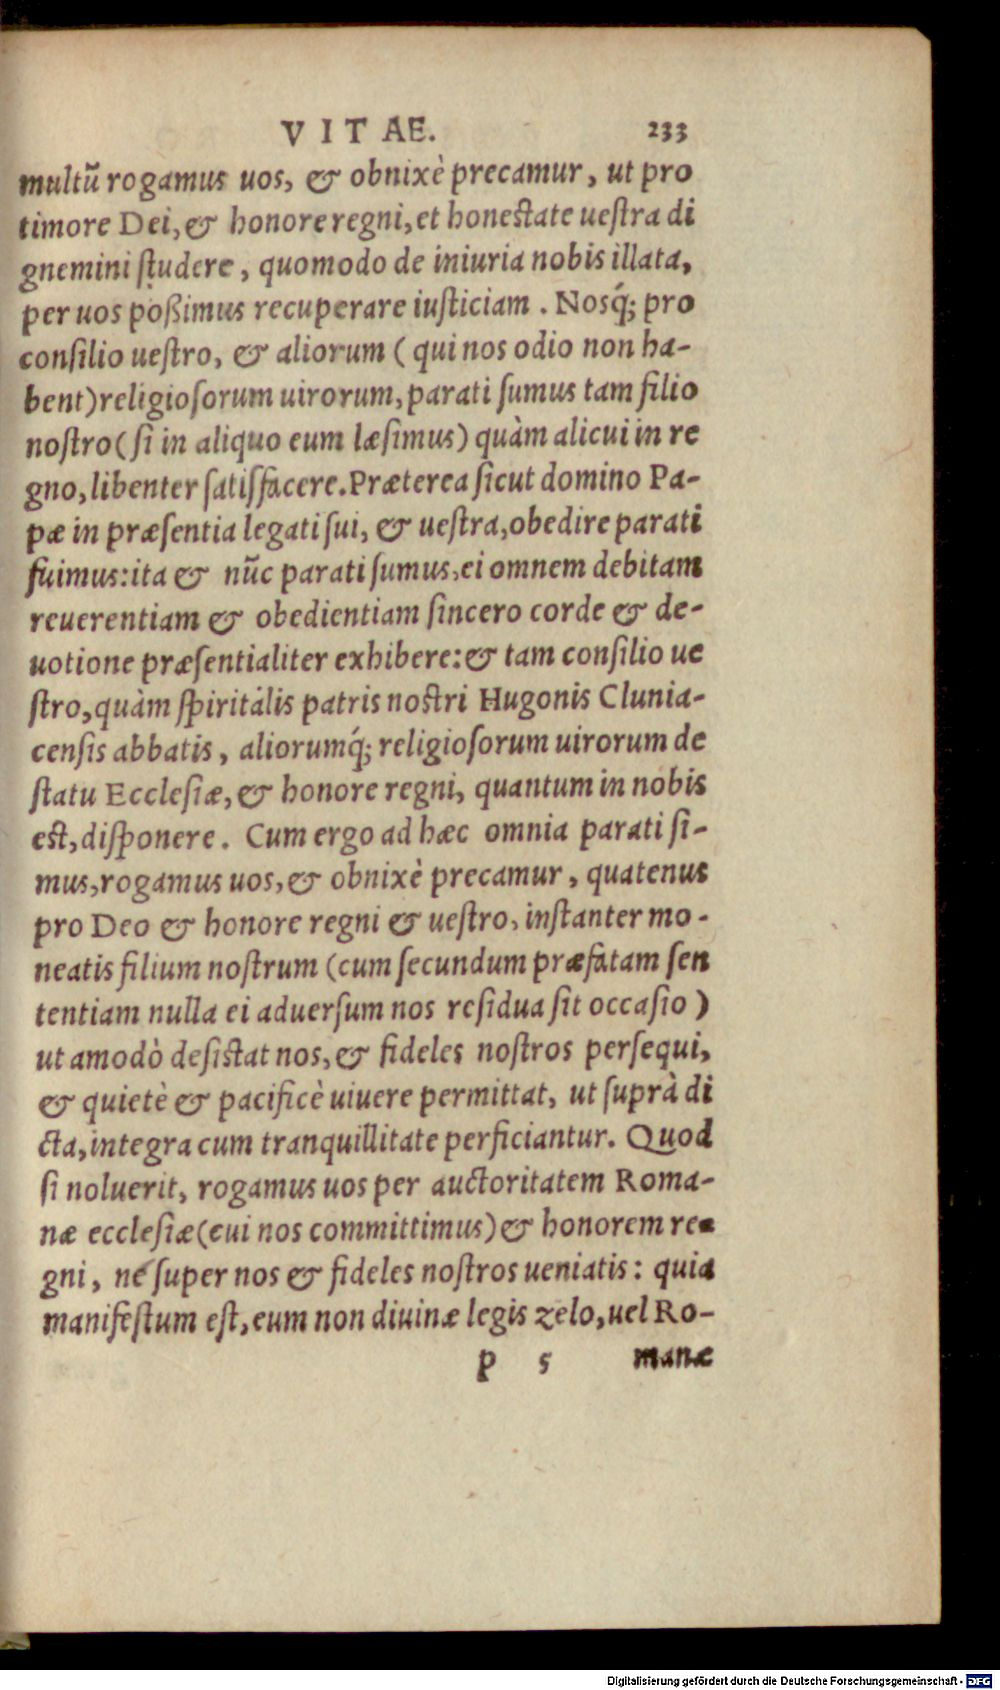 VITAE. 233
multũ rogamus uos, & obnixè precamur, ut pro
timore Dei, & honore regni, et honestate uestra di
gnemini studere, quomodo de iniuria nobis illata,
per uos poßimus recuperare iusticiam. Nosq́; pro
consilio uestro, & aliorum (qui nos odio non ha-
bent) religiosorum uirorum, parati sumus tam filio
nostro (si in aliquo eum læsimus) quàm alicui in re
gno, libenter satisfacere. Præterea sicut domino Pa-
pæ in præsentia legati sui, & uestra, obedire parati
fuimus: ita & nũc parati sumus, ei omnem debitam
reuerentiam & obedientiam sincero corde & de-
uotione præsentialiter exhibere: & tam consilio ue
stro, quàm spiritalis patris nostri Hugonis Clunia-
censis abbatis, aliorumq́; religiosorum uirorum de
statu Ecclesiæ, & honore regni, quantum in nobis
est, disponere. Cum ergo ad hæc omnia parati si-
mus, rogamus uos, & obnixè precamur, quatenus
pro Deo & honore regni & uestro, instanter mo-
neatis filium nostrum (cum secundum præfatam sen
tentiam nulla ei aduersum nos residua sit occasio)
ut amodò desistat nos, & fideles nostros persequi,
& quietè & pacificè uiuere permittat, ut suprà di
cta, integra cum tranquillitate perficiantur. Quod
si noluerit, rogamus uos per auctoritatem Roma-
næ ecclesiæ (cui nos committimus) & honorem re-
gni, né super nos & fideles nostros ueniatis: quia
manifestum est, eum non diuinæ legis zelo, uel Ro-
p 5 manæ
Digitalisierung gefördert durch die Deutsche Forschungsgemeinschaft - DFG